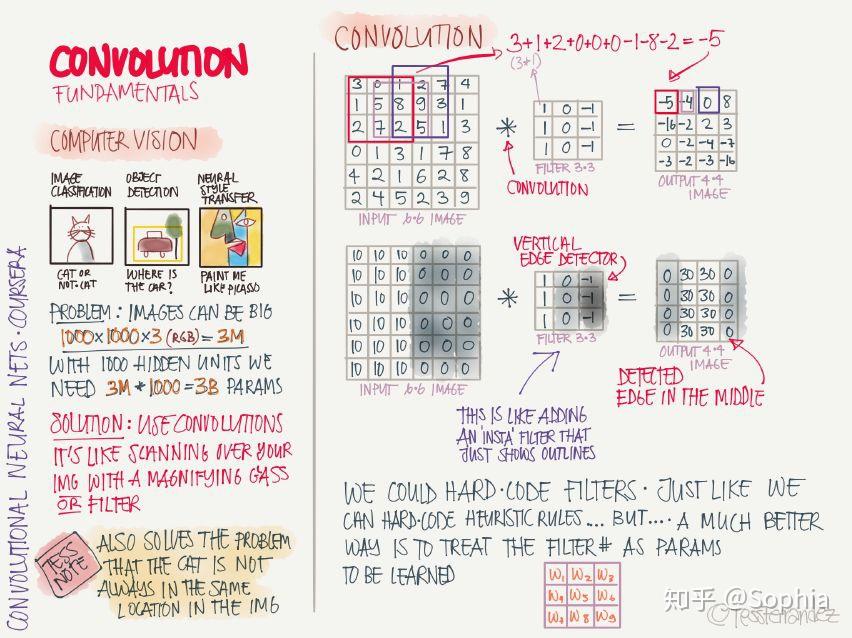 CONVOLUTION
FUNDAMENTALS
COMPUTER VISION
IMAGE CLASSIFICATION
OBJECT DETECTION
NEURAL STYLE TRANSFER
CAT OR NOT-CAT
WHERE IS THE CAR?
PAINT ME LIKE PICASSO
PROBLEM: IMAGES CAN BE BIG
1000×1000×3 (RGB) = 3M
WITH 1000 HIDDEN UNITS WE
NEED 3M * 1000 = 3B PARAMS
SOLUTION: USE CONVOLUTIONS
IT'S LIKE SCANNING OVER YOUR
IMG WITH A MAGNIFYING GASS
OR FILTER
TESS NOTE
ALSO SOLVES THE PROBLEM
THAT THE CAT IS NOT
ALWAYS IN THE SAME
LOCATION IN THE IMG
CONVOLUTIONAL NEURAL NETS · COURSERA
CONVOLUTION
3+1+2+0+0+0-1-8-2=-5
(3*1)
3 0 1 2 7 4
1 5 8 9 3 1
2 7 2 5 1 3
0 1 3 1 7 8
4 2 1 6 2 8
2 4 5 2 3 9
INPUT 6·6 IMAGE
*
1 0 -1
1 0 -1
1 0 -1
FILTER 3×3
CONVOLUTION
=
-5 -4 0 8
-16 -2 2 3
0 -2 -4 -7
-3 -2 -3 -16
OUTPUT 4·4
IMAGE
10 10 10 0 0 0
10 10 10 0 0 0
10 10 10 0 0 0
10 10 10 0 0 0
10 10 10 0 0 0
10 10 10 0 0 0
INPUT 6·6 IMAGE
*
VERTICAL
EDGE DETECTOR
1 0 -1
1 0 -1
1 0 -1
FILTER 3×3
=
0 30 30 0
0 30 30 0
0 30 30 0
0 30 30 0
OUTPUT 4·4
IMAGE
DETECTED
EDGE IN THE MIDDLE
THIS IS LIKE ADDING
AN 'INSTA' FILTER THAT
JUST SHOWS OUTLINES
WE COULD HARD-CODE FILTERS · JUST LIKE WE
CAN HARD-CODE HEURISTIC RULES... BUT.... A MUCH BETTER
WAY IS TO TREAT THE FILTER # AS PARAMS
TO BE LEARNED
W1 W2 W3
W4 W5 W6
W7 W8 W9
知乎 @Sophia
©TessFerrandez